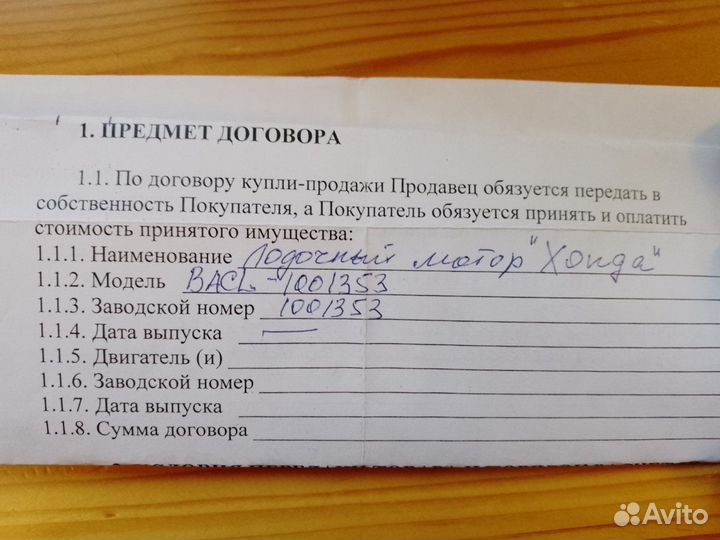 1. ПРЕДМЕТ ДОГОВОРА
1.1. По договору купли-продажи Продавец обязуется передать в
собственность Покупателя, а Покупатель обязуется принять и оплатить
стоимость принятого имущества:
1.1.1. Наименование Лодочный мотор "Хонда"
1.1.2. Модель BACL-1001353
1.1.3. Заводской номер 1001353
1.1.4. Дата выпуска —
1.1.5. Двигатель (и)
1.1.6. Заводской номер
1.1.7. Дата выпуска
1.1.8. Сумма договора
Avito